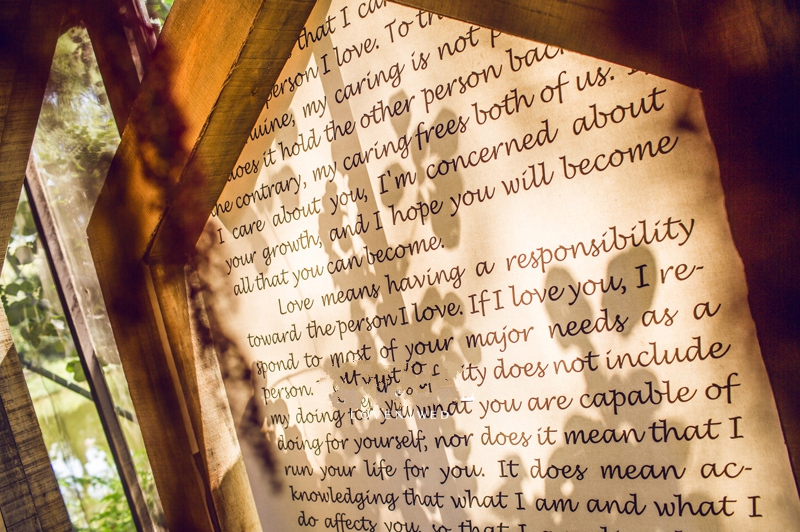 that I
person I love. To
my caring is not
does it hold the other person
the contrary, my caring frees both of us.
I care about you, I'm concerned about
your growth, and I hope you will become
all that you can become.
Love means having a responsibility
toward the person I love. If I love you, I re-
spond to most of your major needs as a
person. ity does not include
my doing for you what you are capable of
doing for yourself, nor does it mean that I
run your life for you. It does mean ac-
knowledging that what I am and what I
do affects you, so that I